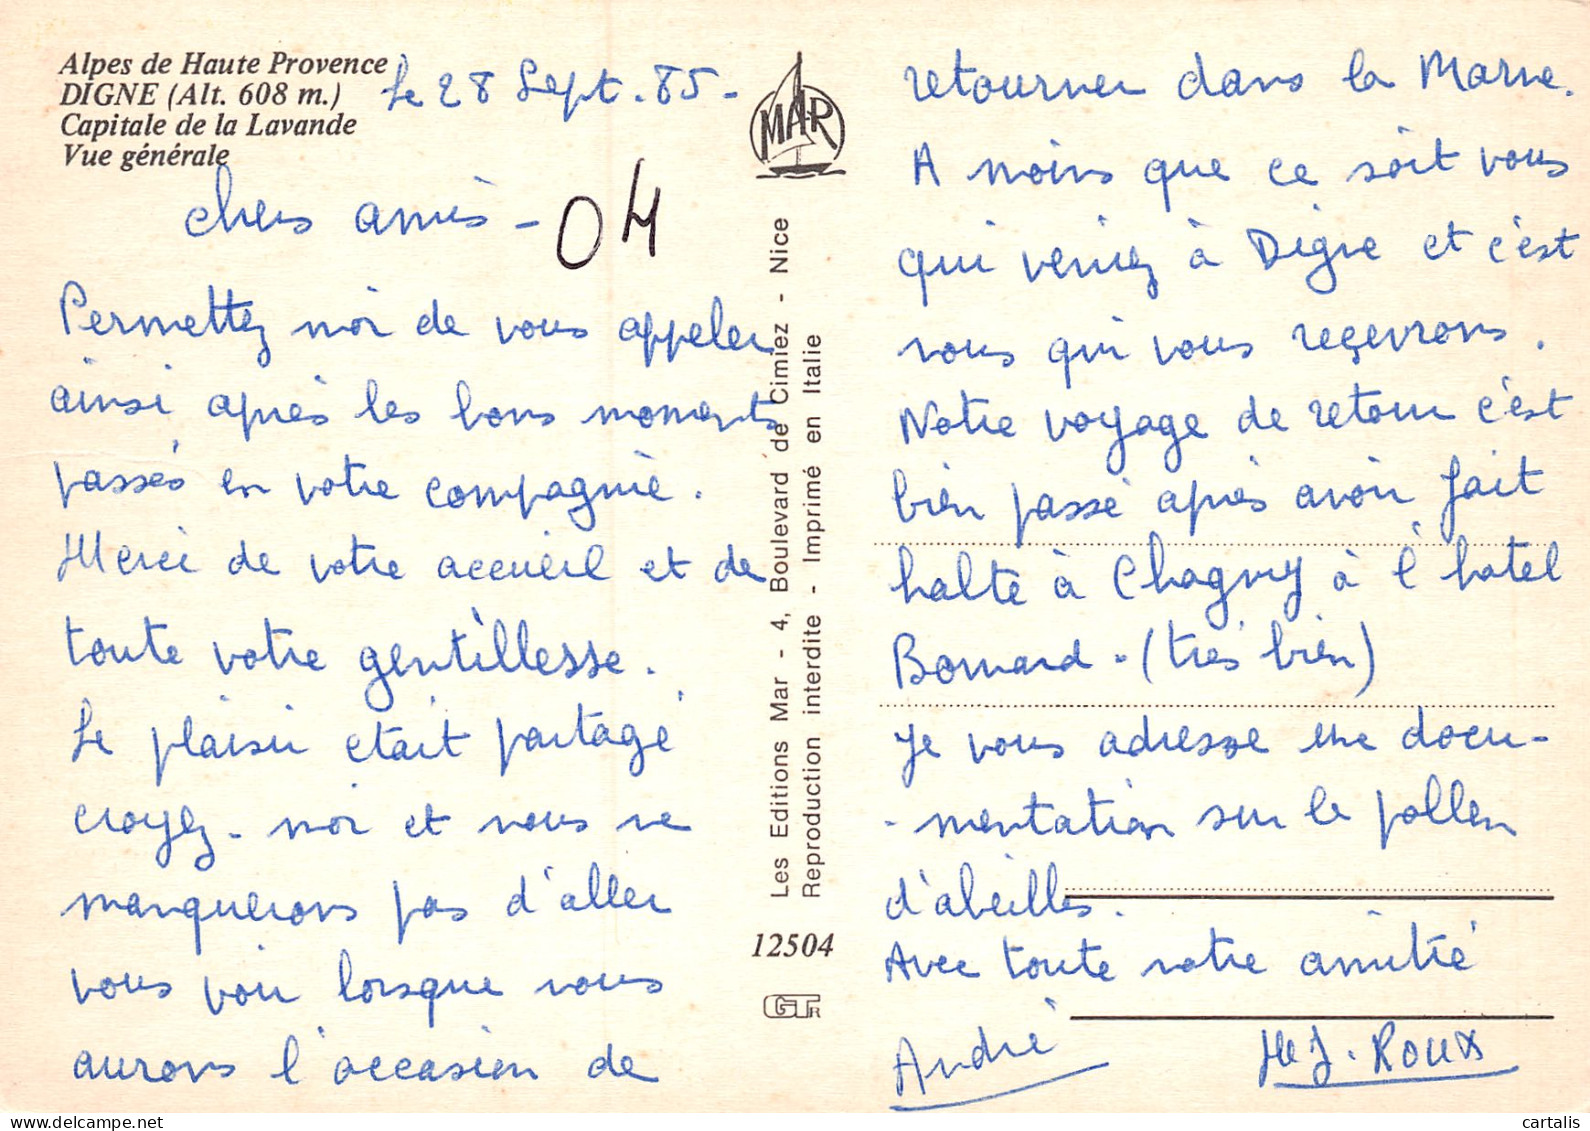 Alpes de Haute Provence
DIGNE (Alt. 608 m.)
Capitale de la Lavande
Vue générale
Le 28 Sept. 85-
04
chers amis -
Permettez moi de vous appeler
ainsi après les bons moments
passés en votre compagnie.
Merci de votre accueil et de
toute votre gentillesse.
Le plaisir était partagé
croyez-moi et nous ne
manquerons pas d'aller
vous voir lorsque nous
aurons l'occasion de
MAR
Les Editions Mar - 4, Boulevard de Cimiez - Nice
Reproduction interdite - Imprimé en Italie
12504
GTR
retourner dans la Marne.
A moins que ce soit vous
qui veniez à Digne et c'est
nous qui vous reçevrons.
Notre voyage de retour c'est
bien passé après avoir fait
halte à Chagny à l'hotel
Bonnard - (très bien)
Je vous adresse une docu-
-mentation sur le pollen
d'abeilles.
Avec toute notre amitié
André
J. Roux
cartalis